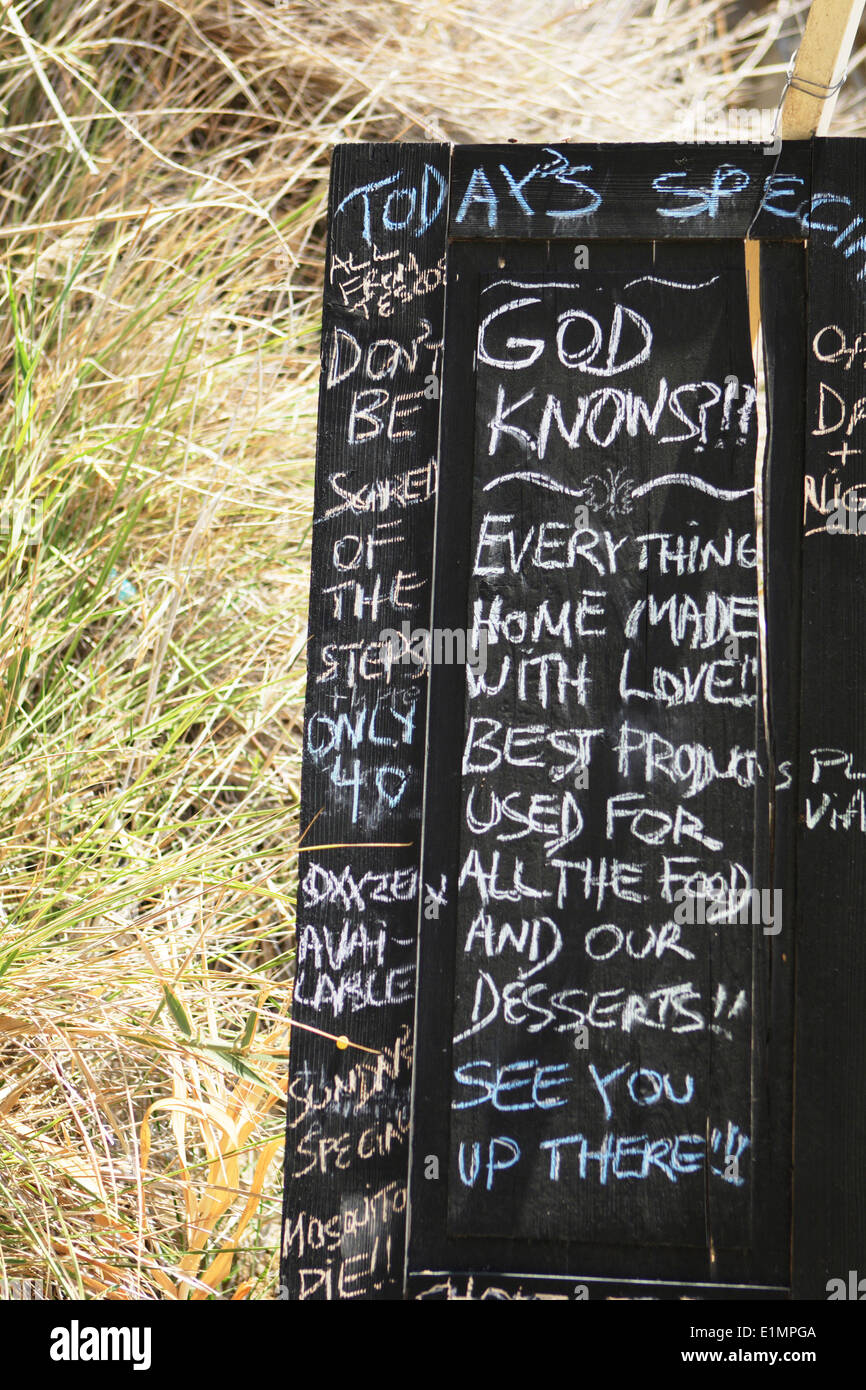 TODAY'S SPECIA
ALL
FROM
TESCOS
DON'T
BE
SCARED
OF
THE
STEPS
ONLY
40
OXXZEN
AVAI-
LABLE
SUNDAYS
SPECIAL
MOSQUITO
PIE!!
GOD
KNOWS?!!
EVERYTHING
HOME MADE
WITH LOVE!!
BEST PRODUCTS
USED FOR
ALL THE FOOD
AND OUR
DESSERTS!!
SEE YOU
UP THERE!!!
+
alamy
a
alamy
Image ID: E1MPGA
www.alamy.com